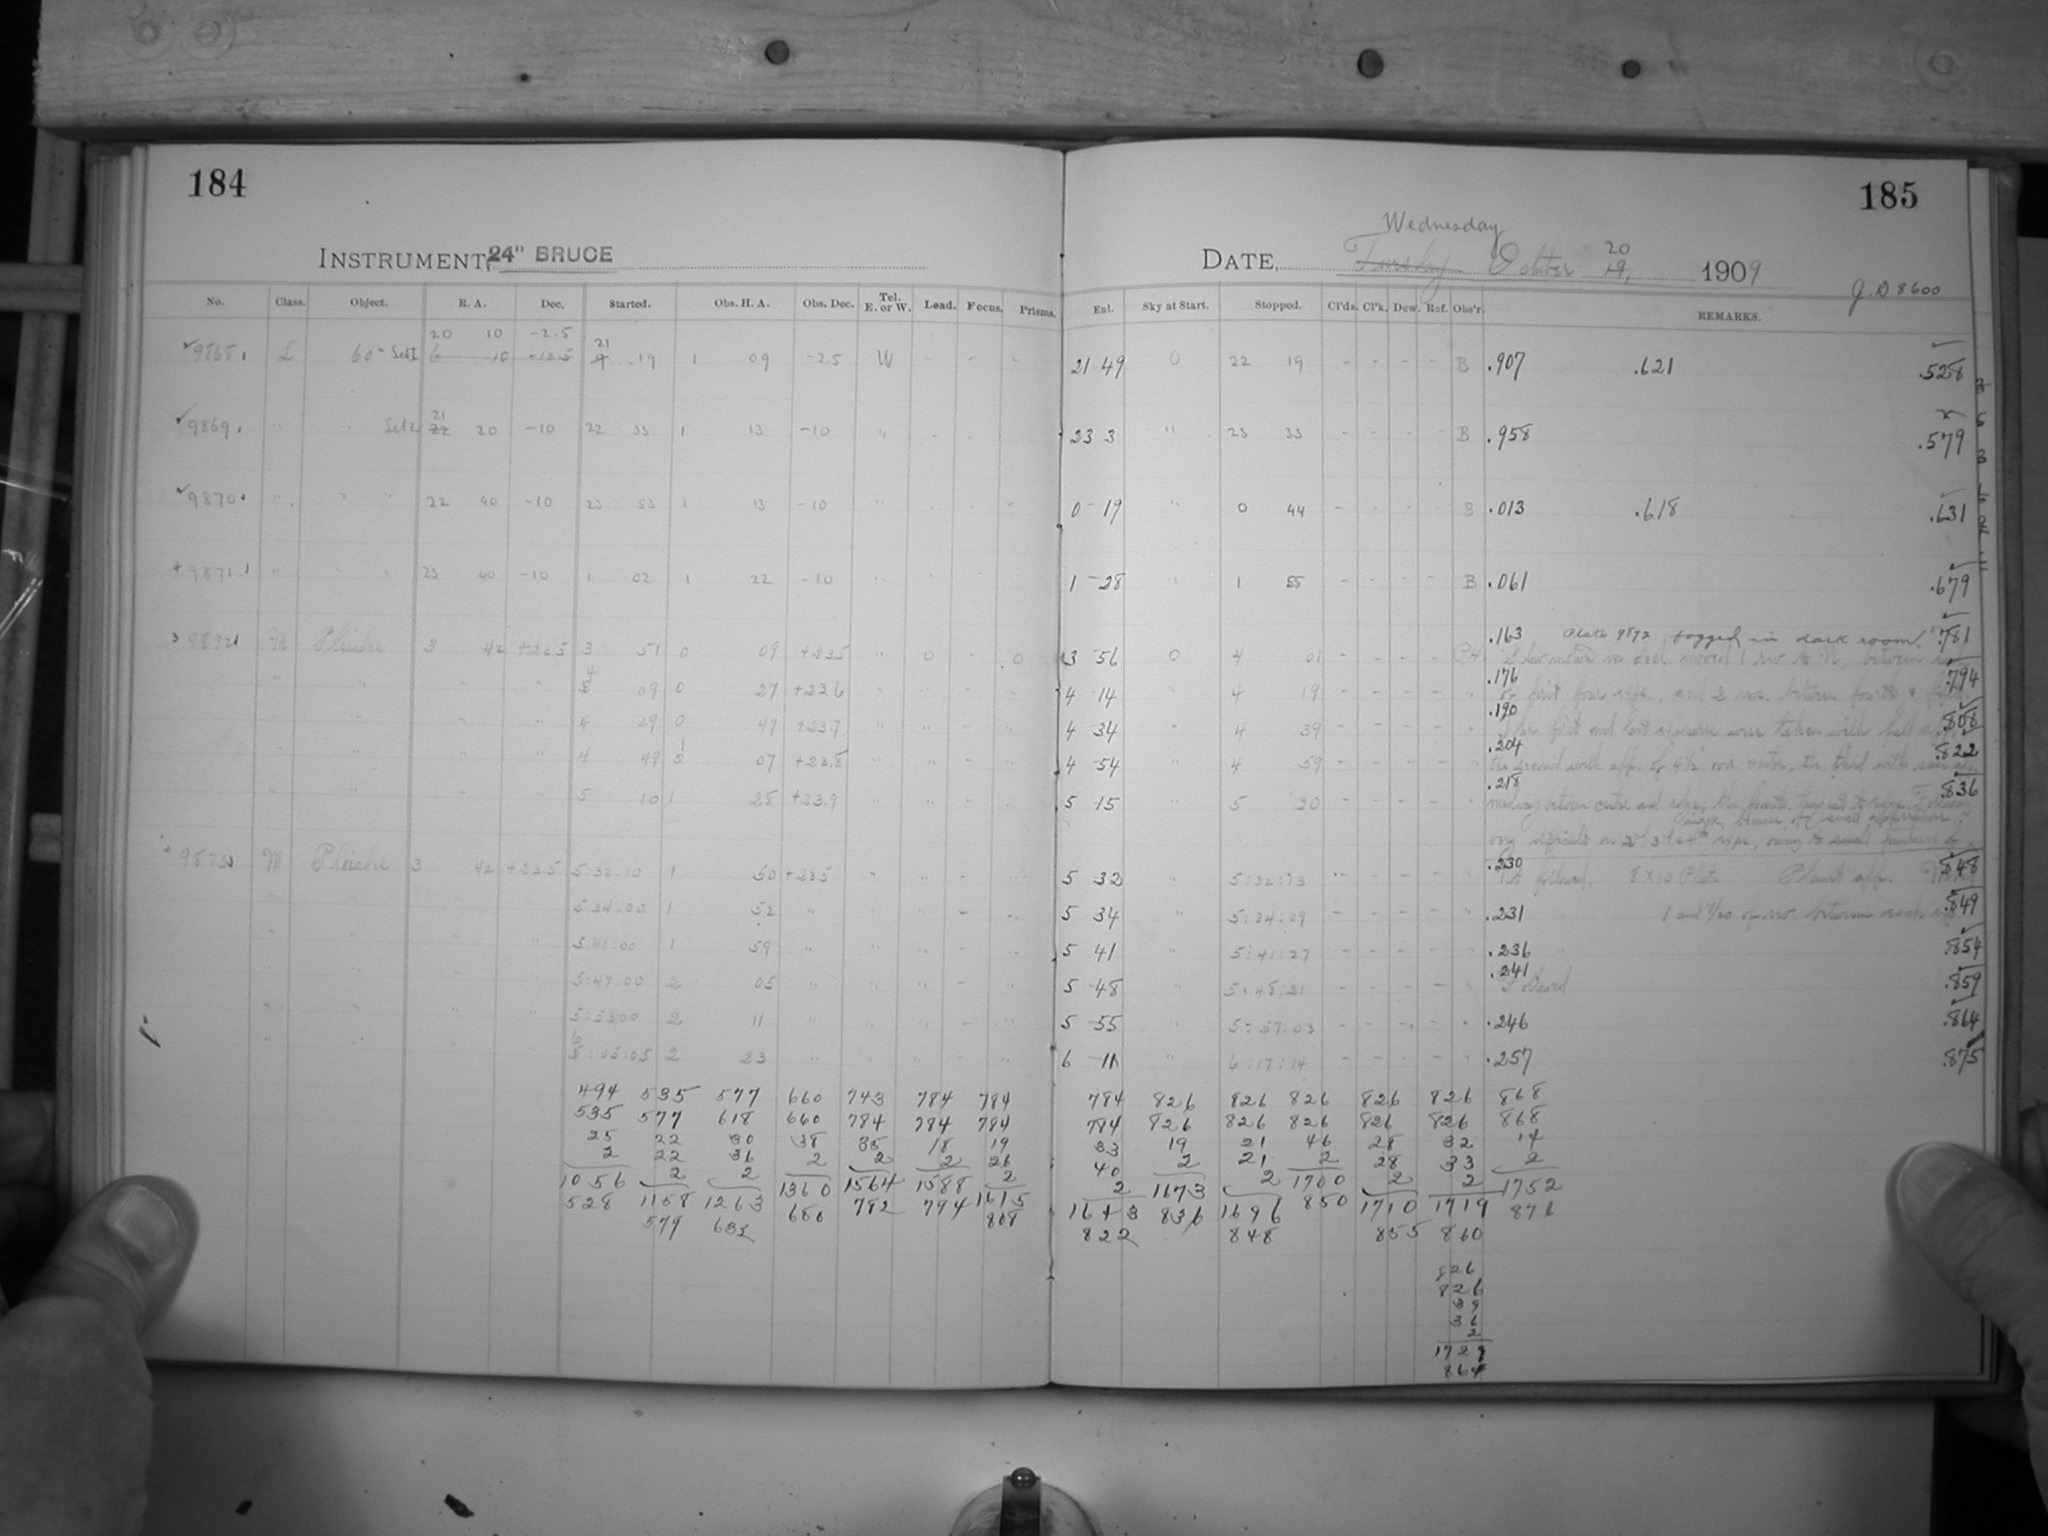 184
INSTRUMENT, 24" BRUCE
No. Class. Object. R. A. Dec. Started. Obs. H. A. Obs. Dec. Tel. E. or W. Load. Focus. Prisms.
20 10 -2.5 21
9868 L 60- Set 1 6 10 -12.5 9 19 1 09 -2.5 W - - -
21
9869 " " Set 2 22 20 -10 22 33 1 13 -10 " - -
9870 " " " 22 40 -10 23 53 1 13 -10 "
9871 " " " 23 40 -10 1 02 1 22 -10
9872 M Pleiades 3 42 +23.5 3 51 0 09 +23.5 " 0 - 0
4
" " " " 5 09 0 27 +23.6 " " - "
" " " " 4 29 0 47 +23.7 " " - "
1
" " " " 4 49 0 07 +23.8 " " - "
" " " " 5 10 1 28 +23.9 " " - "
9873 M Pleiades 3 42 +23.5 5:32:10 1 50 +23.5
" " " " 5 34:00 1 52 " " " - "
" " " " 5:41:00 1 59 " " " - "
" " " " 5:47:00 2 05 " " " - "
" " " " 5:53:00 2 11 " " " - "
6
" " " " 5:05:05 2 23 " " " - "
494 535 577 660 743 784 784
535 577 618 660 784 784 784
25 22 30 38 35 18 19
2 22 36 2 2 2 26
1056 2 2 1360 1564 1588 2
528 1158 1263 680 782 794 1615
579 632 808
185
Wednesday
20
DATE, Tuesday October 19, 1909
J.D 8600
Ent. Sky at Start. Stopped. Cl'ds. Cl'k. Dew. Ref. Obs'r. REMARKS.
21 49 0 22 19 - - - - B .907 .621 .528
23 3 " 23 33 - - - - B .958 .579
0 19 " 0 44 - - - - B .013 .618 .631
1 28 " 1 55 - - - - B .061 .679
.163 Plate 9872 fogged in dark room. .781
3 56 0 4 01 - - - - Slow motion moved 1 rev. to N, between
.176 .794
4 14 " 4 19 - - - - " first four exps., and 2 revs. between fourth &
.190 .808
4 34 " 4 39 - - - - " The first and last exposure were taken with full
.204 .822
4 54 " 4 59 - - - - " the second with app. of 4½ over center, the third with same
.218 .836
5 15 " 5 30 - - - - midway between centre and edge; the fourth tangent to edge.
very difficult on 2d 3d & 4th exps, owing to
.230 .848
5 32 5:32:13 - - - - Not followed. 8 x 10 Plate
5 34 " 5:34:09 - - - - " .231 1 and 7/20 of rev. between each .849
5 41 " 5:41:27 - - - - " .236 .854
.241
5 48 " 5:48:21 - - - - " Followed .859
5 55 " 5:57:03 - - - - " .246 .864
6 11 " 6:17:14 - - - - .257 .875
784 826 826 826 826 826 868
784 826 826 826 826 826 868
33 19 21 46 28 32 14
40 2 21 2 28 33 2
2 1673 2 1700 2 2 1752
1643 836 1696 850 1710 1719 876
822 848 855 860
826
826
39
36
2
1729
864